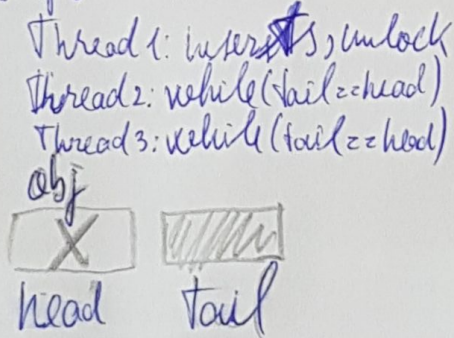 Thread1: inserts, unlock
Thread2: while(tail==head)
Thread3: while(tail==head)
obj
X
head tail